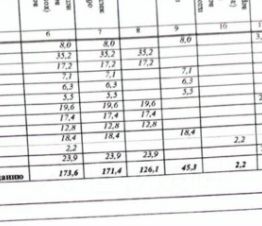 6 7 8 9 10
8,0 8,0 8,0
35,2 35,2 35,2
17,2 17,2 17,2
7,1 7,1 7,1
6,3 6,3 6,3
5,5 5,5 5,5
19,6 19,6 19,6
17,4 17,4 17,4
12,8 12,8 12,8
18,4 18,4 18,4
2,2 2,2
23,9 23,9 23,9
173,6 171,4 126,1 45,3 2,2